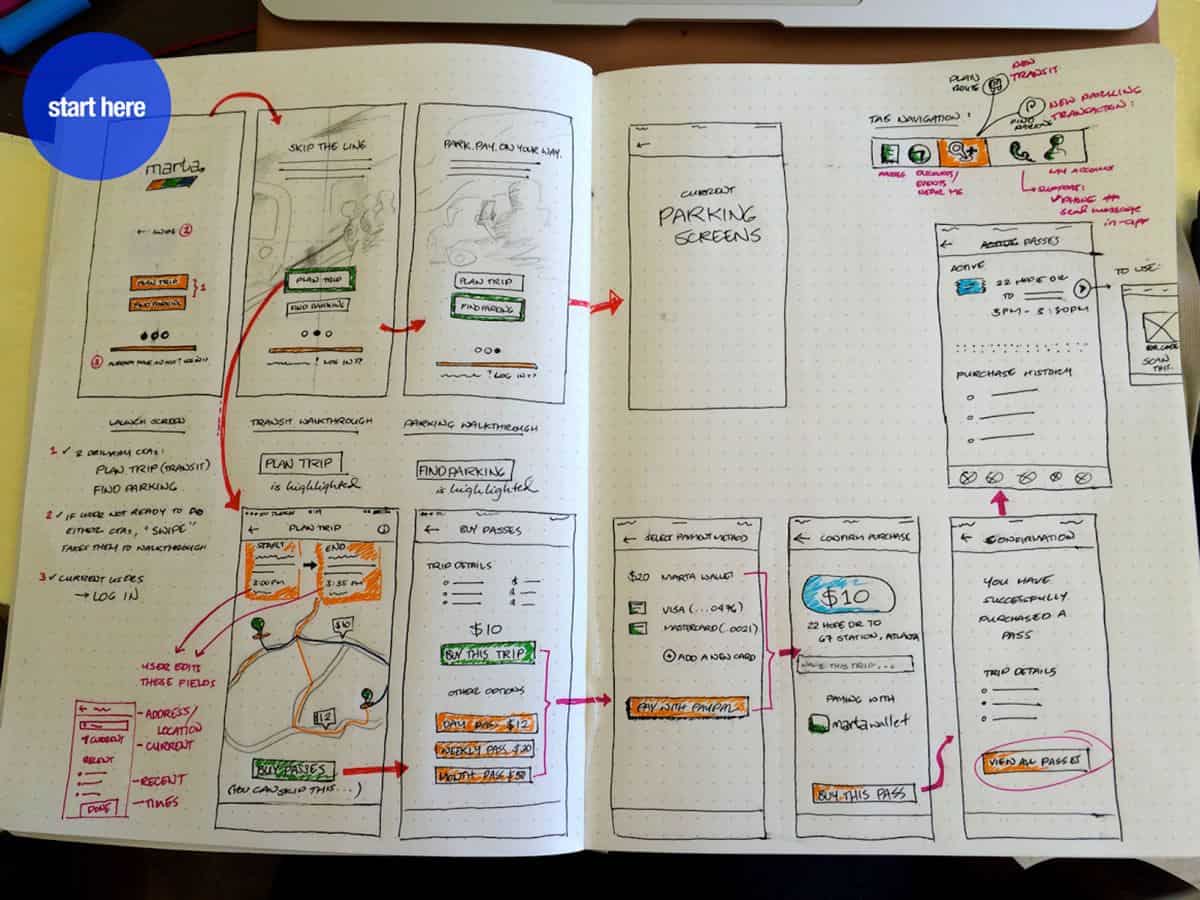 start here
marta
← SWIPE 2
PLAN TRIP
FIND PARKING
1
3 ALREADY HAVE AN ACCT? LOG IN??
LAUNCH SCREEN
1 ✓ 2 PRIMARY CTAS:
PLAN TRIP (TRANSIT)
FIND PARKING
2 ✓ IF USER NOT READY TO DO
EITHER CTAS, "SWIPE"
TAKES THEM TO WALKTHROUGH
3 ✓ CURRENT USERS
→ LOG IN
SKIP THE LINE
PLAN TRIP
FIND PARKING
? LOG IN??
TRANSIT WALKTHROUGH
PLAN TRIP
is highlighted
PARK. PAY. ON YOUR WAY.
PLAN TRIP
FIND PARKING
? LOG IN??
PARKING WALKTHROUGH
FIND PARKING
is highlighted
← PLAN TRIP
START
END
3:00 PM
3:35 PM
$10
$12
BUY PASSES
(YOU CAN SKIP THIS...)
USER EDITS
THESE FIELDS
CURRENT
RECENT
DONE
- ADDRESS/
LOCATION
- CURRENT
- RECENT
- TIMES
← BUY PASSES
TRIP DETAILS
$
$
$10
BUY THIS TRIP
OTHER OPTIONS
DAY PASS $12
WEEKLY PASS $20
MONTH PASS $50
←
CURRENT
PARKING
SCREENS
TAB NAVIGATION:
PLAN
ROUTE
NEW
TRANSIT
P
FIND
PARKING
NEW PARKING
TRANSACTION:
PASSES
EVENTS
NEAR ME
MY ACCOUNT
SUPPORT:
✓ PHONE #
send message
in-app
← ACTIVE PASSES
ACTIVE
22 HOPE DR
TO
3PM - 3:30PM
PURCHASE HISTORY
TO USE:
BAR CODE
SCAN
THIS
← SELECT PAYMENT METHOD
$20 MARTA WALLET
VISA (...0496)
MASTERCARD (..0021)
+ ADD A NEW CARD
PAY WITH PAYPAL
← CONFIRM PURCHASE
$10
22 HOPE DR TO
67 STATION, ATLANTA
THIS TRIP...
PAYING WITH
martawallet
BUY THIS PASS
← CONFIRMATION
YOU HAVE
SUCCESSFULLY
PURCHASED A
PASS
TRIP DETAILS
VIEW ALL PASSES